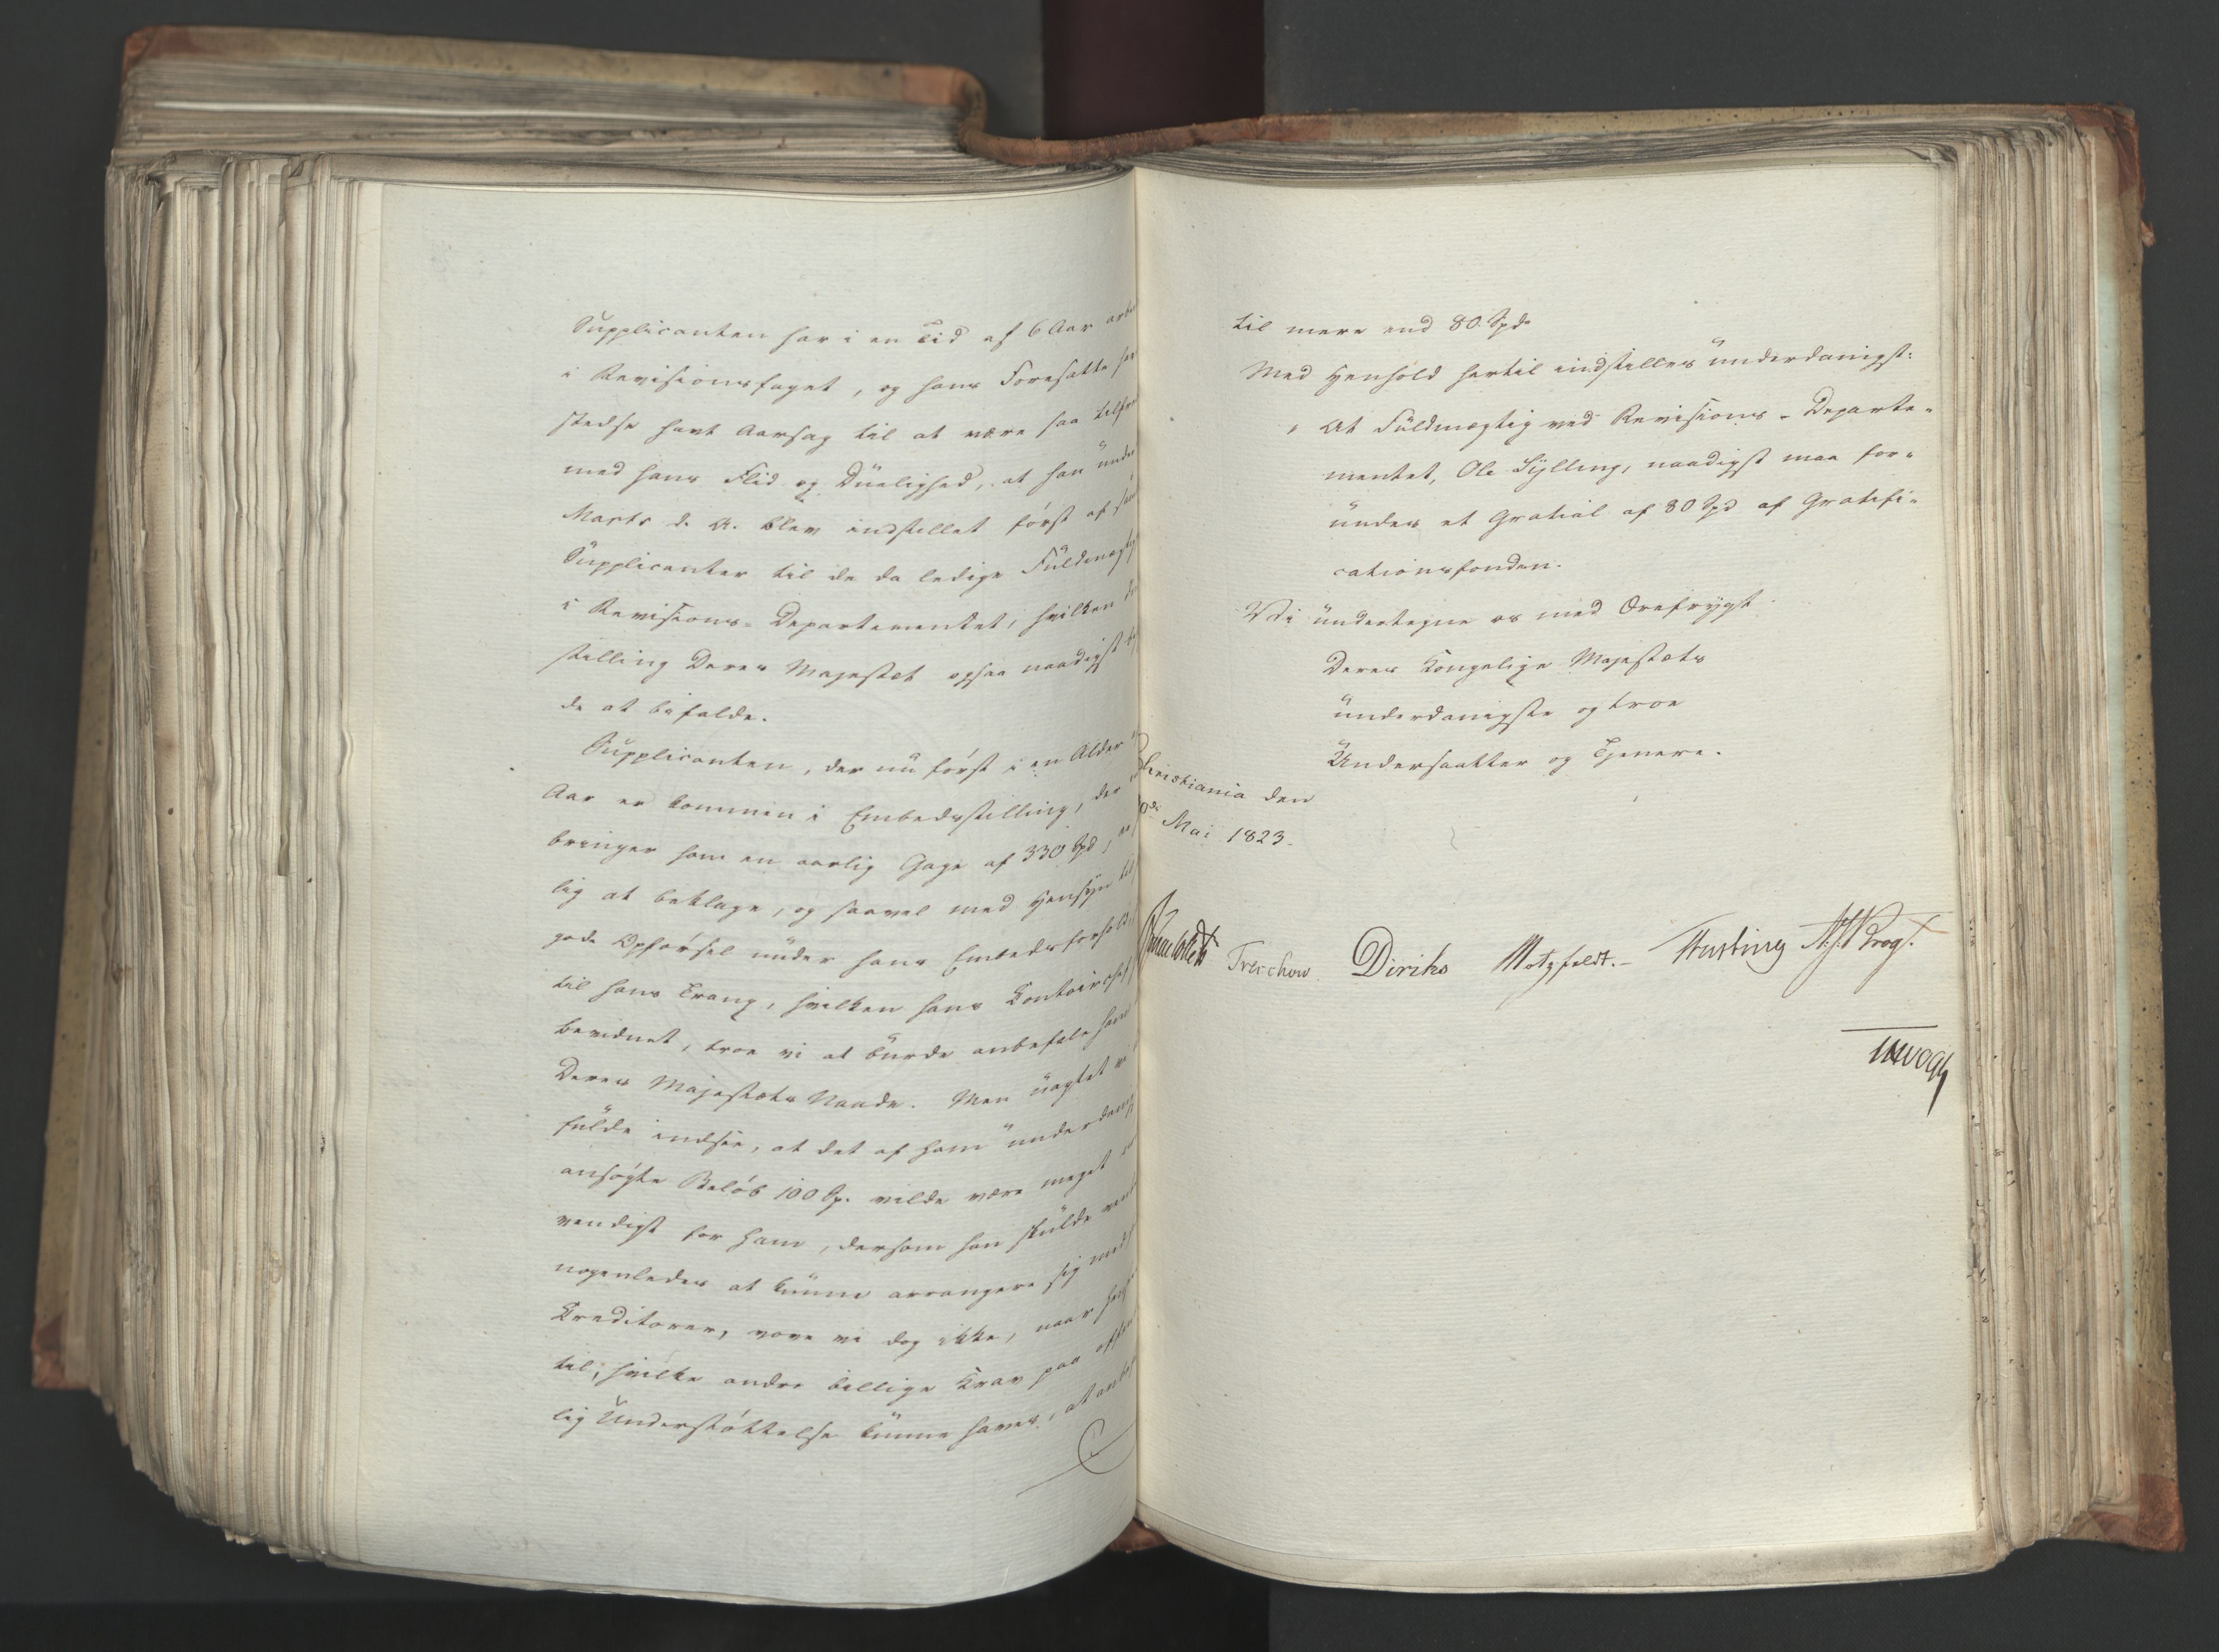 Supplicanten har i en Tid af 6 Aar
i Revisionsfaget, og hans Foresatte
stedse havt Aarsag til at være saa
med hans Flid og Duelighed, at han
Marts d. A. blev indstillet først af
Supplicanter til de da ledige
i Revisions-Departementet, hvilken
stilling Deres Majestæt ogsaa naadigst
de at bifalde.
Supplicanten, der nu først i en Alder
Aar er kommen i Embedsstilling, der
bringer ham en aarlig Gage af 330 Spd,
lig at beklage, og saavel med Hensyn til
gode Opførsel under hans Embedsforhold
til hans Trang, hvilken hans
bevidnet, troe vi at burde anbefale ham
Deres Majestæts Naade. Men uagtet vi
fulde indsee, at det af ham
ansøgte Beløb 100 Sp. vilde være meget
vendigt for ham, dersom han skulde
nogenledes at kunne arrangere sig med
Creditorer, vove vi dog ikke, naar
til, hvilke andre billige Krav paa
lig Understøttelse kunne haves,
til mere end 80 Spd.
Med Henhold hertil indstilles underdanigst:
At Fuldmægtig ved Revisions-Departe-
mentet, Ole Sylling, naadigst maa for-
undes et Gratial af 80 Spd af Gratifi-
cationsfonden.
Vi undertegne os med Ærefrygt
Deres Kongelige Majestæts
underdanigste og troe
Undersaatter og Tjenere.
Christiania den
Mai 1823.
Treschow Diriks Motzfeldt. Fasting N. J. Krog.
Vogt